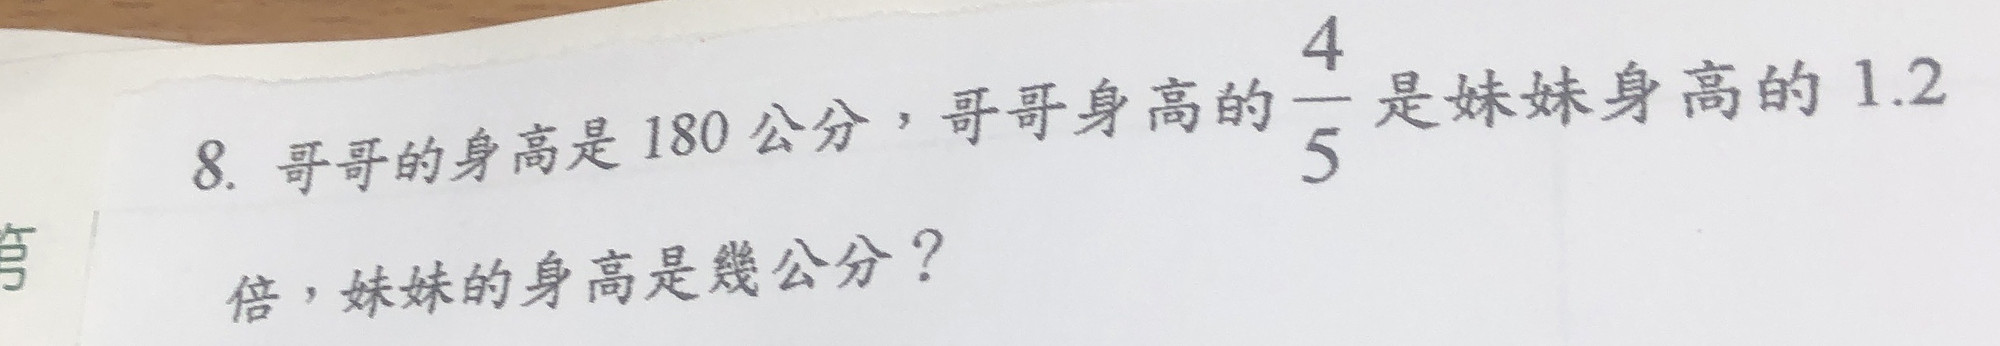 8. 哥哥的身高是 180 公分，哥哥身高的 4/5 是妹妹身高的 1.2
倍，妹妹的身高是幾公分？